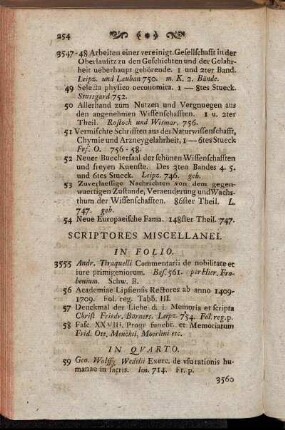 254
3547-48 Arbeiten einer vereinigt. Gesellschafft in der
Oberlausitz zu den Geschichten und der Gelahr-
heit ueberhaupt gehörende. 1 und 2ter Band.
Leipz. und Lauban 750. m. K. 2. Bände.
49 Selecta physico oeconomica. 1 — 8tes Stueck.
Stuttgard 752.
50 Allerhand zum Nutzen und Vergnuegen aus
den angenehmen Wissenschafften. 1 u. 2ter
Theil. Rostock und Weimar. 756.
51 Vermischte Schrifften aus der Naturwissenschafft,
Chymie und Arzneygelahrheit, 1—6tes Stueck
Frf. O. 756-58.
52 Neuer Buechersaal der schönen Wissenschafften
und freyen Kuensте. Des 3ten Bandes 4. 5.
und 6tes Stueck. Leipz. 746. geb.
53 Zuverlaessige Nachrichten von dem gegen-
waertigen Zustande, Veraenderung und Wachs-
thum der Wissenschafften. 86ster Theil. L.
747. geb.
54 Neue Europaeische Fama. 148ster Theil. 747.
SCRIPTORES MISCELLANEI.
IN FOLIO.
3555 Andr. Tiraquelli Commentarii de nobilitate et
iure primigeniorum. Bas. 561. per Hier. Fro-
benium. Schw. B.
56 Academiae Lipsiensis Rectores ab anno 1409-
1709. Fol. reg. Tabb. III.
57 Denckmal der Liebe d. i. Memoria et scripta
Christ. Friedr. Boerneri. Leipz. 754. Fol. reg. p.
58 Fasc. XXVIII. Progr. funebr. et Memoriarum
Frid. Ott. Menckei, Mascovii etc.
IN QVARTO.
59 Geo. Wolffg. Wedelii Exerc. de visurationis
humanae in sacris. Ien. 714. Fr. p.
3560